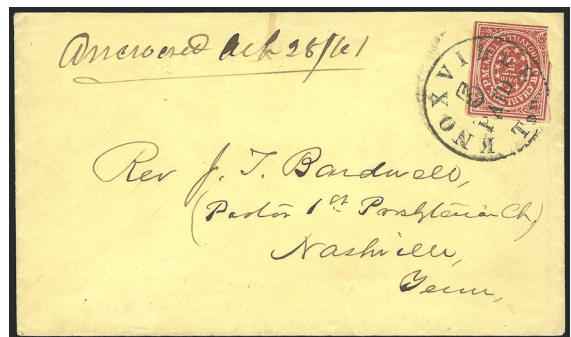 Answered Oct 28/61
KNOXVI
Rev J. T. Bardwell,
(Pastor 1st Presbyterian Ch,)
Nashville,
Tenn,